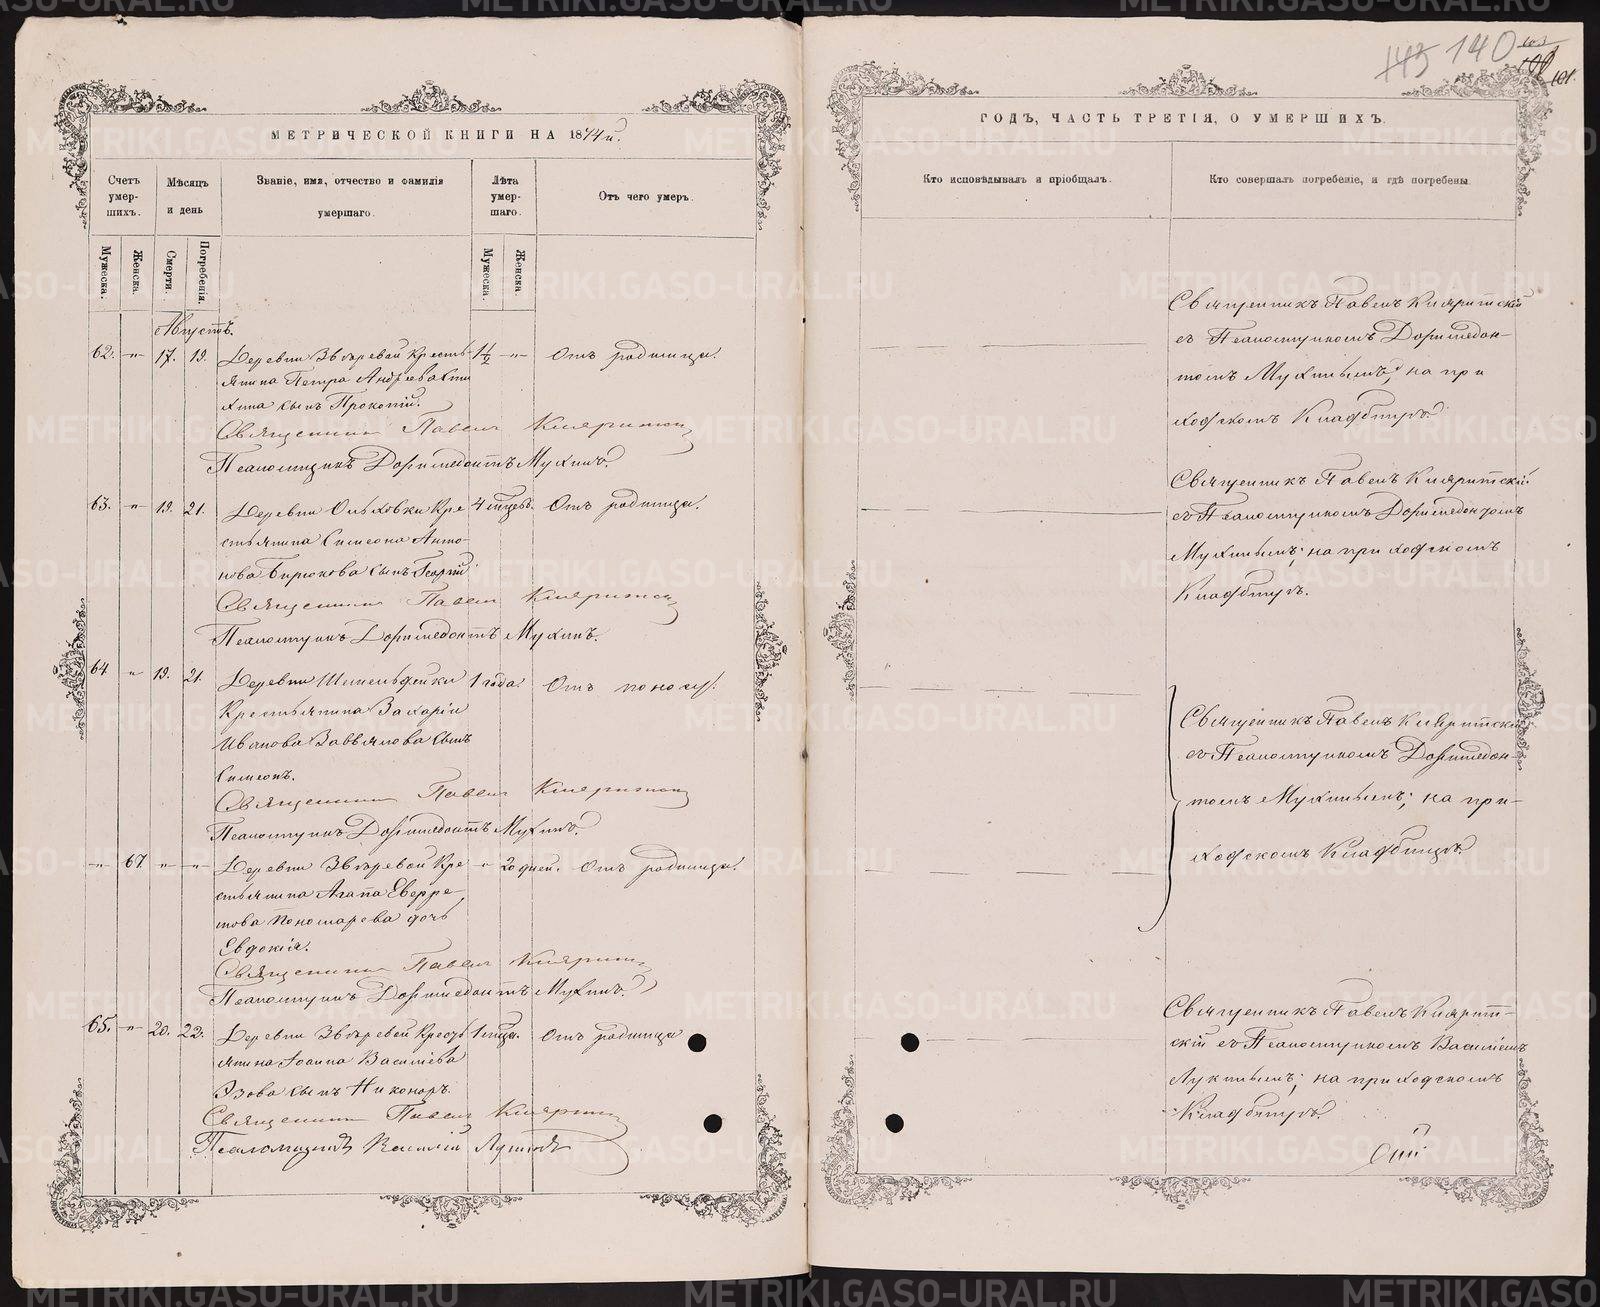 МЕТРИЧЕСКОЙ КНИГИ НА 1874й.
Счетъ умер-шихъ.
Мѣсяцъ и день
Званіе, имя, отчество и фамилія умершаго.
Лѣта умер-шаго.
Отъ чего умеръ.
Мужеска.
Женска.
Смерти.
Погребенія.
Мужеска.
Женска.
Августъ.
62. -"- 17. 19. Деревни Звѣревой Кресть- 1 1/2 -"- Отъ родимца.
янина Петра Андреева
сынъ Прокопій.
Священникъ Павелъ
Псаломщикъ Доримедонтъ Мухинъ.
63. -"- 19. 21. Деревни Ольховки Кре- 4 мцевъ. Отъ родимца.
стьянина Симеона Анто-
нова Бирюкова сынъ Георгій
Священникъ Павелъ
Псаломщикъ Доримедонтъ Мухинъ.
64 -"- 19. 21. Деревни 1 года. Отъ поносу.
Крестьянина Захаріи
Иванова Завьялова сынъ
Симеонъ.
Священникъ Павелъ
Псаломщикъ Доримедонтъ Мухинъ.
-"- 67. -"- -"- Деревни Звѣревой Кре- " 20 дней. Отъ родимца.
стьянина Агапа
Пономарева дочь
Евдокія.
Священникъ Павелъ
Псаломщикъ Доримедонтъ Мухинъ.
65. -"- 20. 22. Деревни Звѣревой Кресть- 1 мца. Отъ родимца
янина Іоанна Василіева
Зова сынъ Никоноръ.
Священникъ Павелъ
Псаломщикъ Василій
143 140 103
101
ГОДЪ, ЧАСТЬ ТРЕТІЯ, О УМЕРШИХЪ.
Кто исповѣдывалъ и пріобщалъ.
Кто совершалъ погребеніе, и гдѣ погребены.
Священникъ Павелъ
съ Псаломщикомъ Доримедон-
томъ Мухинымъ; на при
ходскомъ Кладбищѣ.
Священникъ Павелъ
съ Псаломщикомъ Доримедонтомъ
Мухинымъ; на приходскомъ
Кладбищѣ.
Священникъ Павелъ
съ Псаломщикомъ Доримедон-
томъ Мухинымъ; на при-
ходскомъ Кладбищѣ.
Священникъ Павелъ
скій съ Псаломщикомъ Василіемъ
на приходскомъ
Кладбищѣ.
METRIKI.GASO-URAL.RU